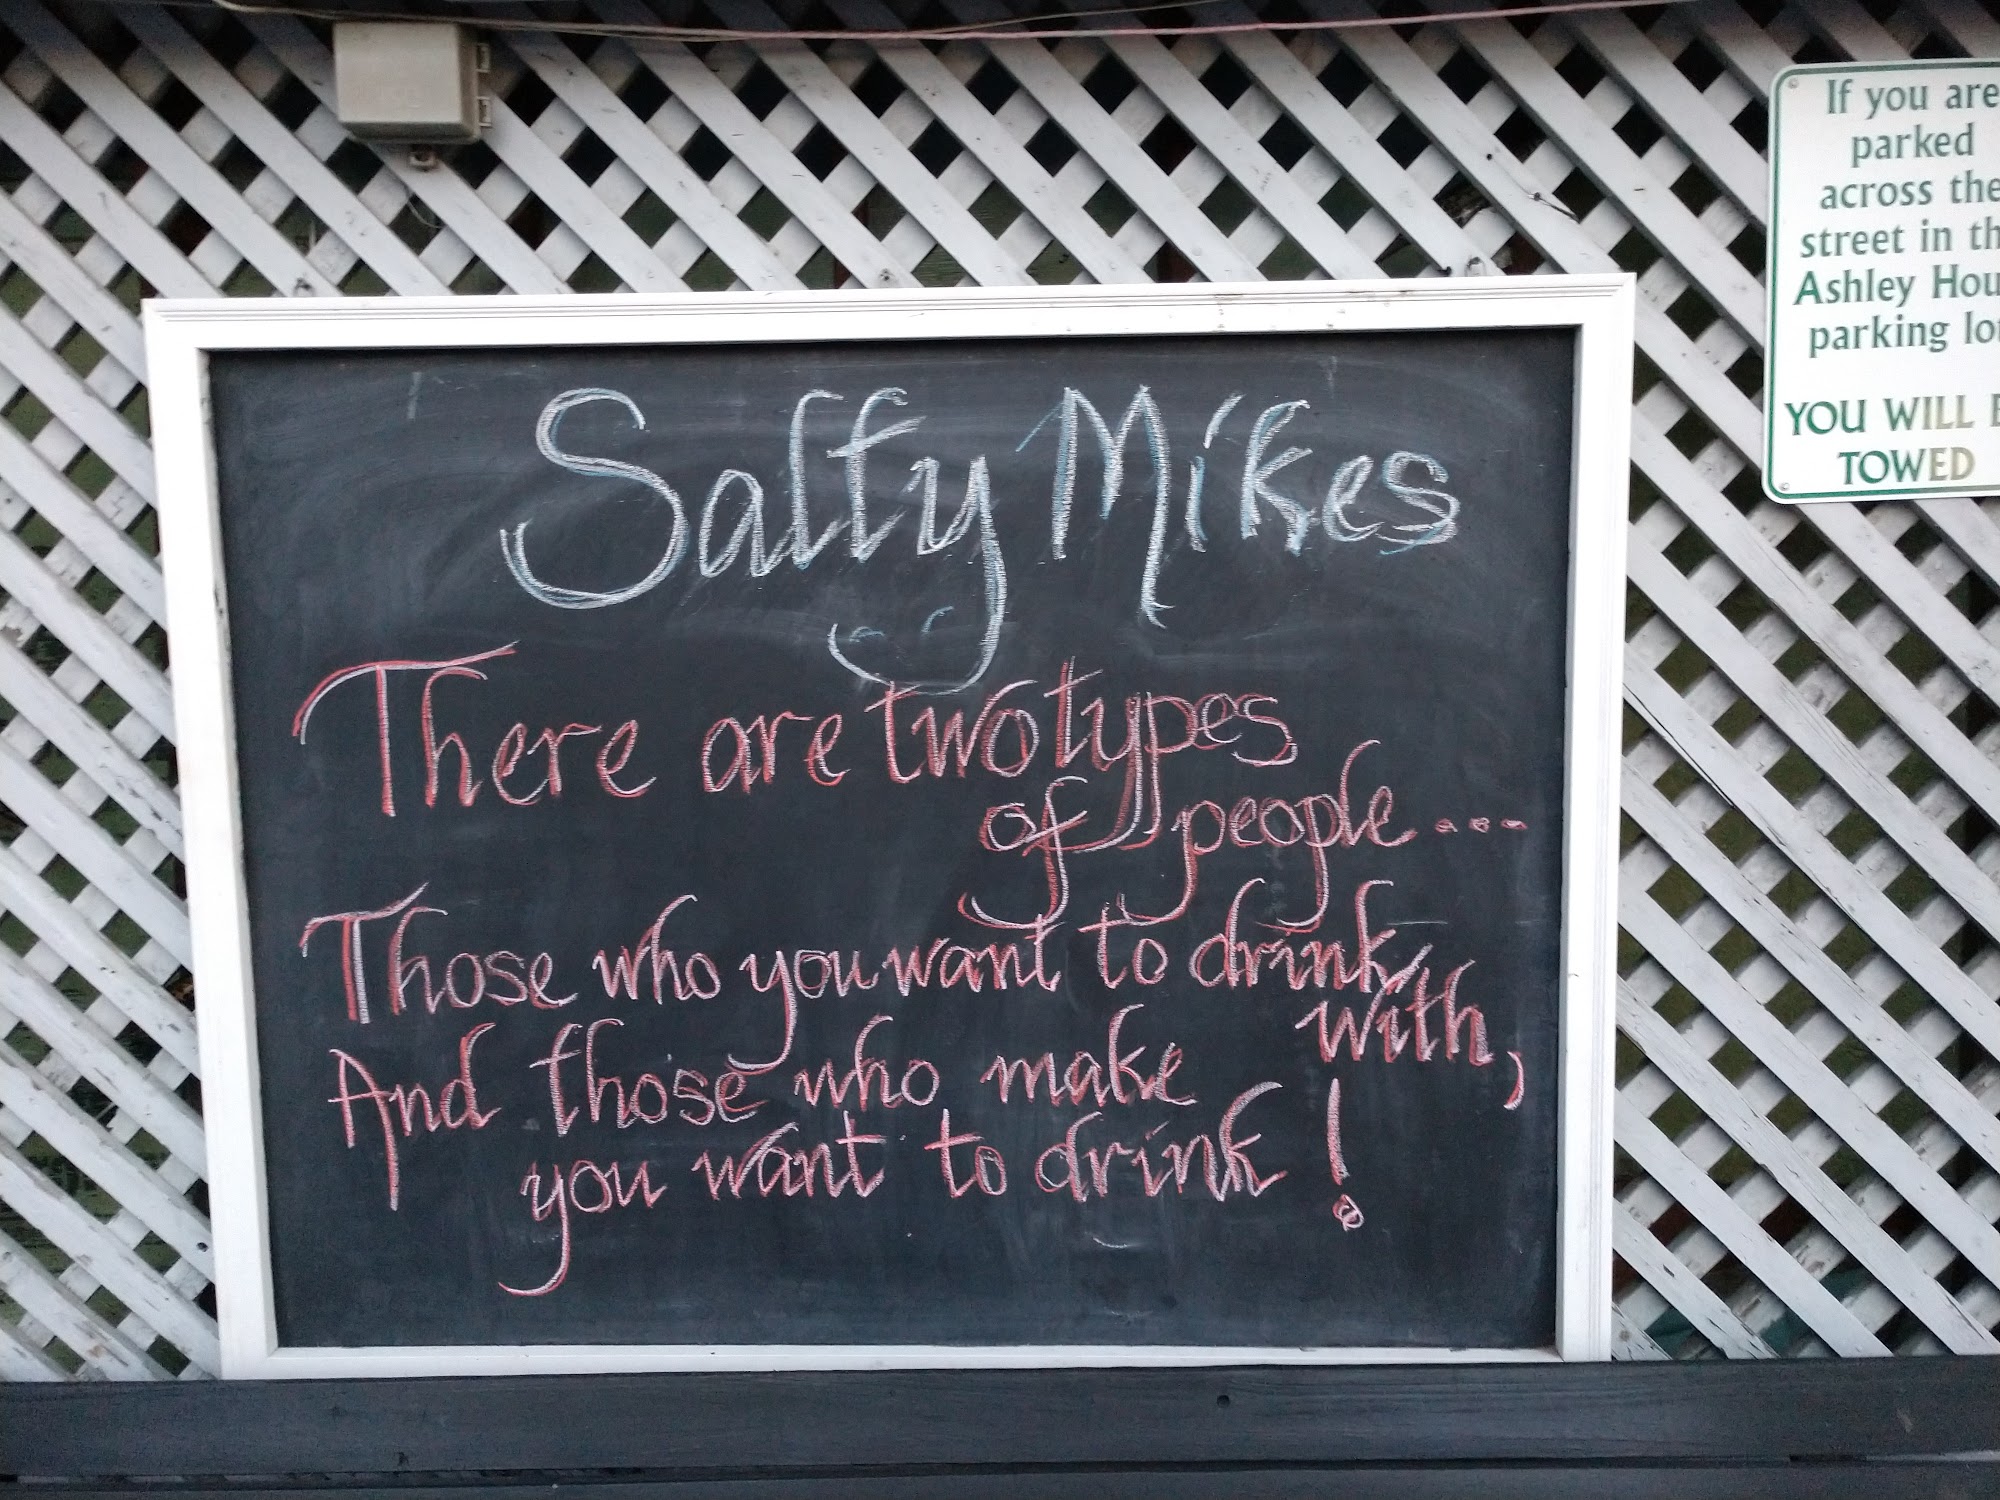 Salty Mikes
There are two types
of people...
Those who you want to drink
with,
And those who make
you want to drink!
If you are
parked
across the
street in th
Ashley Hou
parking lo
YOU WILL B
TOWED